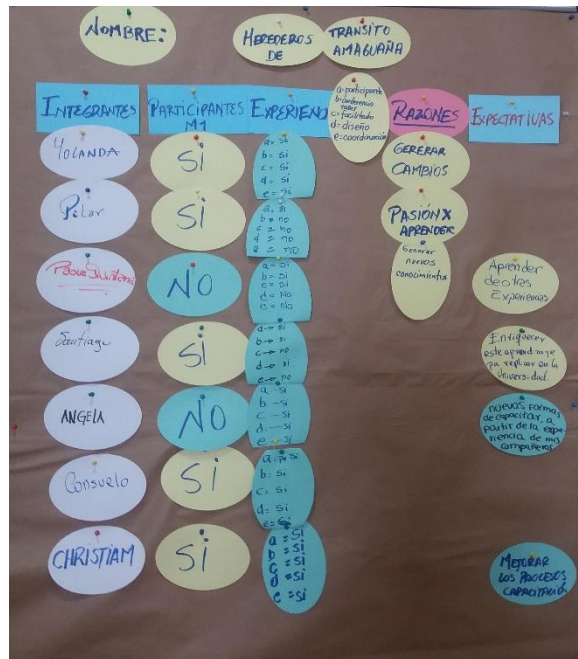 NOMBRE:
HEREDEROS
DE
TRANSITO
AMAGUAÑA
INTEGRANTES
PARTICIPANTES
M1
EXPERIENC
a=participante
b=conferencia
c=facilitado
d=diseño
e=coordinación
RAZONES
EXPECTATIVAS
YOLANDA
SI
a= Si
b = Si
c = Si
d = Si
e = Si
GERERAR
CAMBIOS
Pilar
SI
a. si
b = no
c = no
d = no
e = no
PASION X
APRENDER
NO
a = Si
b = Si
c = Si
d = No
e = No
Generar
nuevos
conocimientos
Aprender
de otras
Experiencias
Santiago
SI
a → si
b → si
c → no
d → si
e → no
Enriquecer
este aprendizaje
pa replicar en la
Universidad.
ANGELA
NO
a - Si
b - Si
c - Si
d - Si
e - Si
nuevas formas
de capacitar, a
partir de la expe-
riencia de mis
compañeros
Consuelo
SI
b = Si
c = Si
d = Si
e = Si
CHRISTIAM
SI
a = Si,
b = Si,
c = Si,
d = Si,
e = Si,
MEJORAR
LOS PROCESOS
CAPACITACIÓN